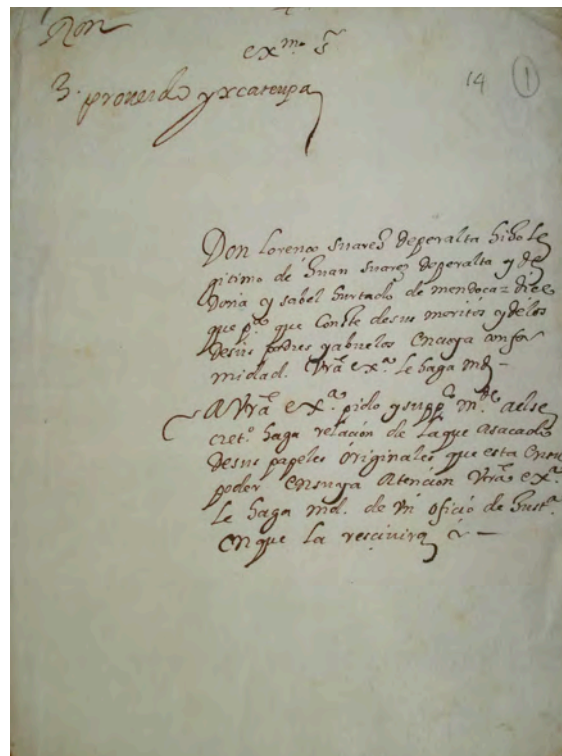 Ron
exmo s
14 1
3. proueido yxcateupa
Don Lorenço suares deperalta hiJo Le
gitimo de Juan suares deperalta y de
Doña ysabel hurtado de mendoça = dice
que pa. que Conste desus meritos y delos
desus padres yabuelos encuya confor
midad. Vrã exa. le haga md -
A Vrã exa. pido ysuppco. mde. aelse
creto. haga relación de laque asacado
desus papeles originales que esta ensu
poder ensuya Atencion Vrã exa.
le haga md. de Vn oficio de Justa.
en que la resciuira &c -